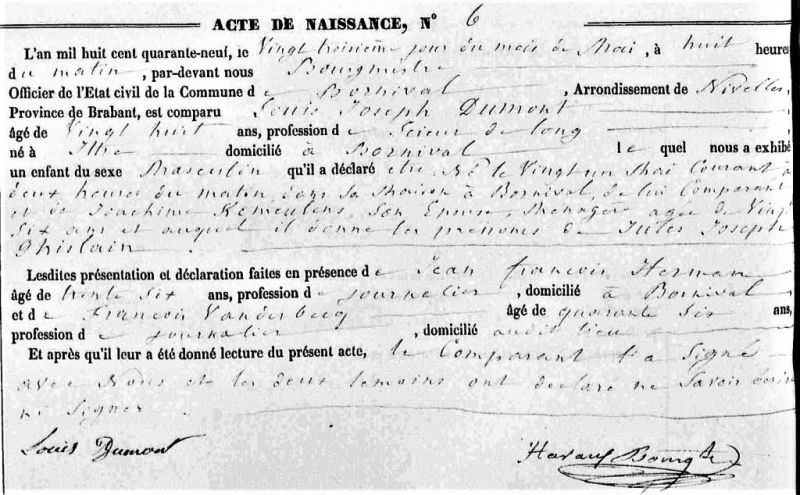 ACTE DE NAISSANCE, N° 6
L'an mil huit cent quarante-neuf, le Vingt troisième jour du mois de Mai, à huit heures
du matin, par-devant nous Bourgmestre
Officier de l'Etat civil de la Commune de Bornival, Arrondissement de Nivelles,
Province de Brabant, est comparu Louis Joseph Dumont
âgé de Vingt huit ans, profession de Scieur de long
né à Ittre domicilié à Bornival lequel nous a exhibé
un enfant du sexe Masculin qu'il a déclaré être Né le Vingt un Mai Courant à
deux heures du matin, dans sa Maison à Bornival, de lui Comparant
et de Joachime Kemeulens, Son Epouse, Menagère agée de Vingt
Six ans et auquel il donne les prénoms de Jules Joseph
Ghislain.
Lesdites présentation et déclaration faites en présence de Jean françois Herman
âgé de trente Six ans, profession de journalier, domicilié à Bornival
et de François Vanderbecq âgé de quarante Six ans,
profession de journalier, domicilié audit lieu
Et après qu'il leur a été donné lecture du présent acte, le Comparant l'a Signé
avec Nous et les deux témoins ont declaré ne Savoir écrire
ni Signer.
Louis Dumont